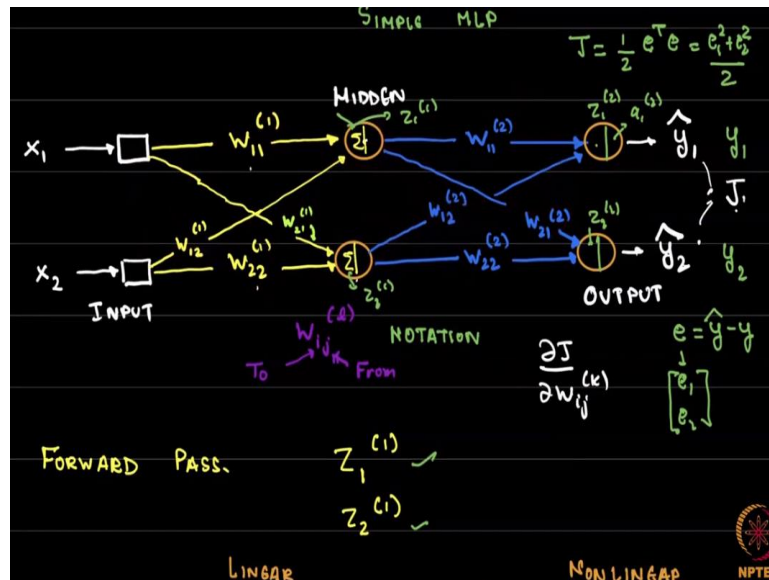 SIMPLE MLP
J = 1/2 eᵀe = (e₁² + e₂²)/2
HIDDEN
z₁⁽¹⁾
z₁⁽²⁾
a₁⁽²⁾
x₁
W₁₁⁽¹⁾
Σ
W₁₁⁽²⁾
ŷ₁
y₁
J
W₁₂⁽¹⁾
W₂₁⁽¹⁾
W₁₂⁽²⁾
W₂₁⁽²⁾
z₂⁽²⁾
x₂
W₂₂⁽¹⁾
Σ
W₂₂⁽²⁾
ŷ₂
y₂
z₂⁽¹⁾
INPUT
OUTPUT
Wᵢⱼ⁽ˡ⁾
NOTATION
To
From
∂J
∂Wᵢⱼ⁽ᴷ⁾
e = ŷ - y
e₁
e₂
FORWARD PASS.
Z₁⁽¹⁾ ✓
Z₂⁽¹⁾ ✓
LINEAR
NONLINEAR
NPTE